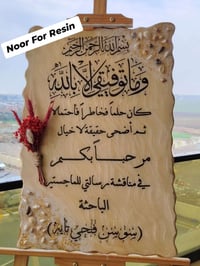 Noor For Resin
بسم الله الرحمن الرحيم
وما توفيقي إلا بالله
كان حلما فخاطرا فاحتمالا
ثم أضحى حقيقة لا خيال
مرحبا بكم
في مناقشة رسالتي للماجستير
الباحثة
(سوسن فتحي